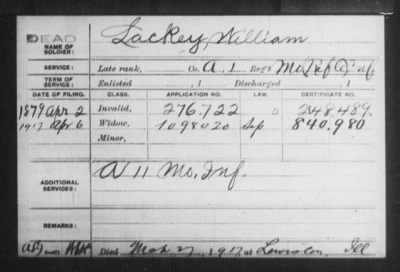 DEAD
NAME OF SOLDIER: Lackey, William
SERVICE: Late rank, Co. A, 1 Reg't Mo. Inf
TERM OF SERVICE: Enlisted , 1 Discharged , 1
DATE OF FILING. CLASS. APPLICATION NO. LAW. CERTIFICATE NO.
1879 Apr. 2 Invalid, 276.722 248.489.
1917 Apr 6 Widow, 1098020 Sep 840.980
Minor,
ADDITIONAL SERVICES: A 11 Mo. Inf.
REMARKS:
Died 1917, at Ill